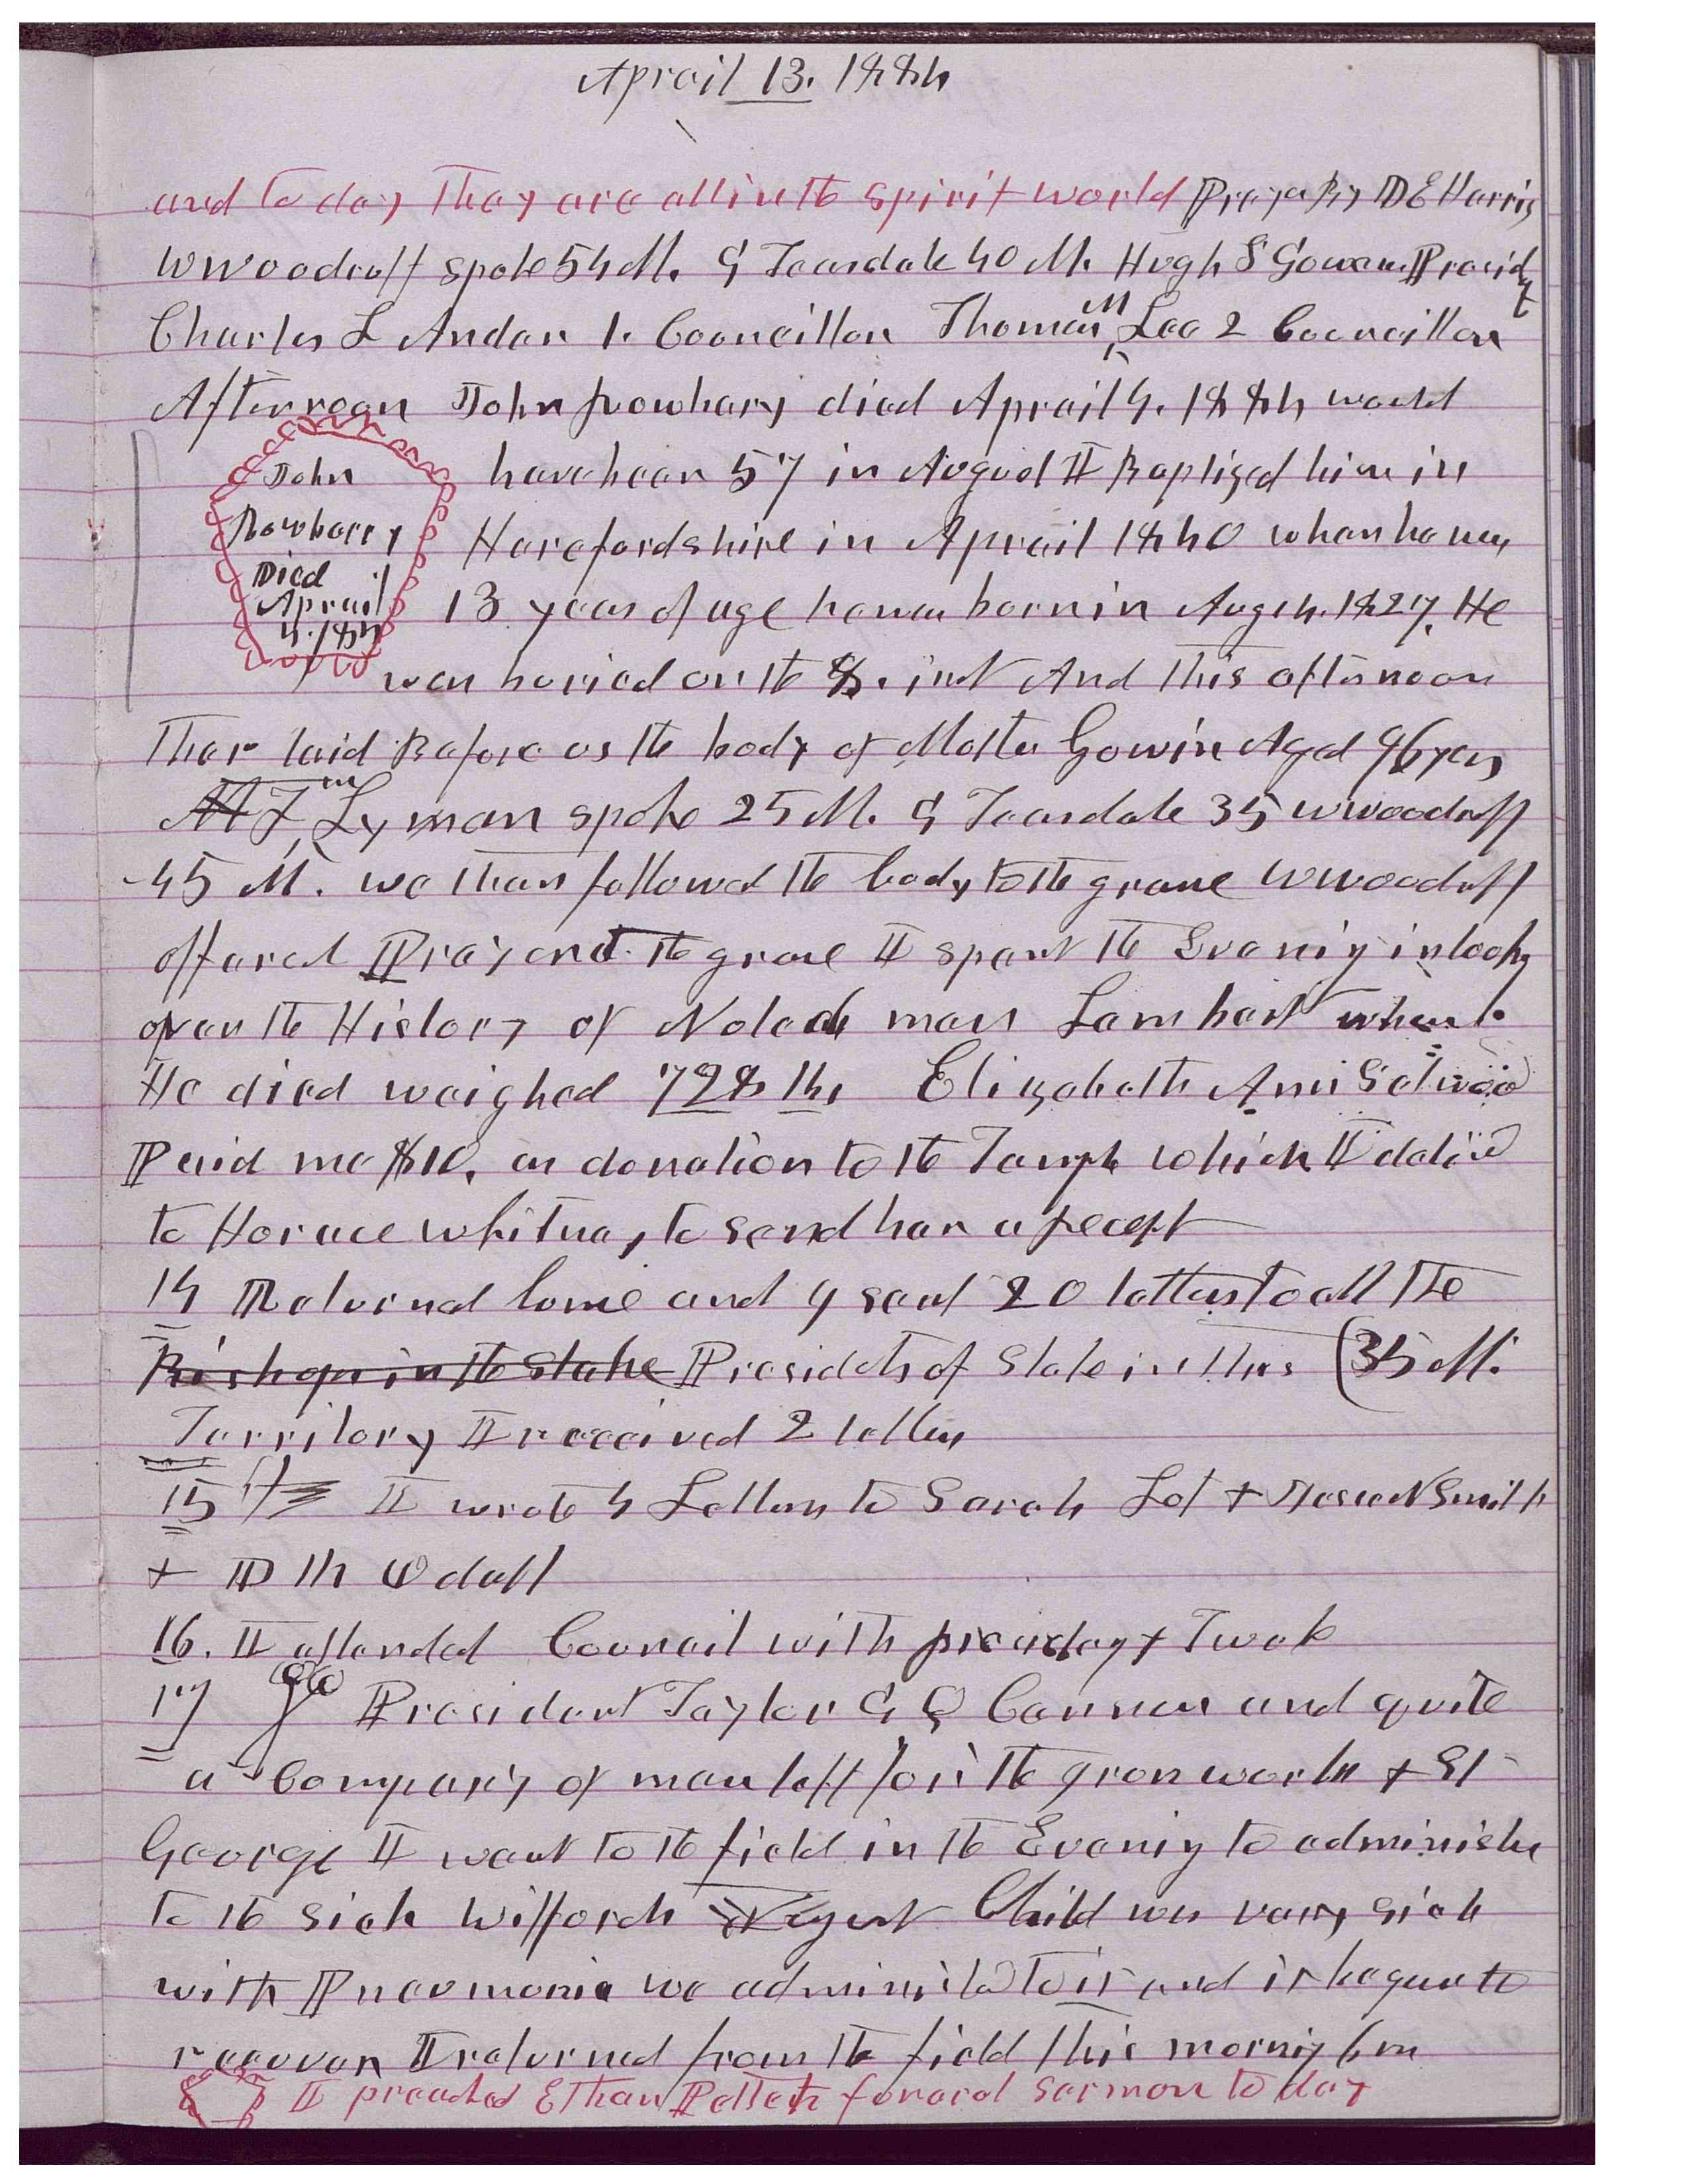 Aprail 13. 1884
and to day They are all in the spirit world Prayer By D E Harris
W Woodruff spoke 54 M. G Teasdale 40 M. Hugh S Gowans Presidt
Charles L Andern 1. Councillor Thomas M Lee 2 Councillor
Afternoon John Nowbary died Aprail 4. 1884 would
have been 57 in August I Baptized him in
John
Nowbarry
Died
Aprail
4. 1884
Harefordshire in Aprail 1840 when he was
13 years of age he was born in Aug 4. 1827. He
was buried on the 8. inst And this afternoon
Ther laid Before us the body of Molta Gowin Aged 96 years
F m Lyman spoke 25 M. G Teasdale 35 W Woodruff
45 M. we then followed the body to the grave W Woodruff
offered Prayer at the grave I spent the Evening in looking
over the History of Noted men Lambert when
He died weighed 728 lbs Elizabeth Ann
Paid me $10. as donation to the Temple which I deliv
to Horace Whitney to send her a recept
14 Returned home and I sent 20 letters to all the
Bishops in the Stake Presidets of Stake in this (35 M.
Territory I received 2 letters
15 I wrote 4 Letters to Sarah Lot + Jesse N Smith
+ D H Wdruff
16. I attended Council with presidency + Twele
17 President Taylor G Q Cannon and quite
a Company of men left for the Iron works + St
George I went to the field in the Evening to administer
to the sick Wilfords Child was very sick
with Pneumonia we administed to it and it began to
recover I returned from the field this morning 6 m
I preached Ethan Pettets funeral sermon to day